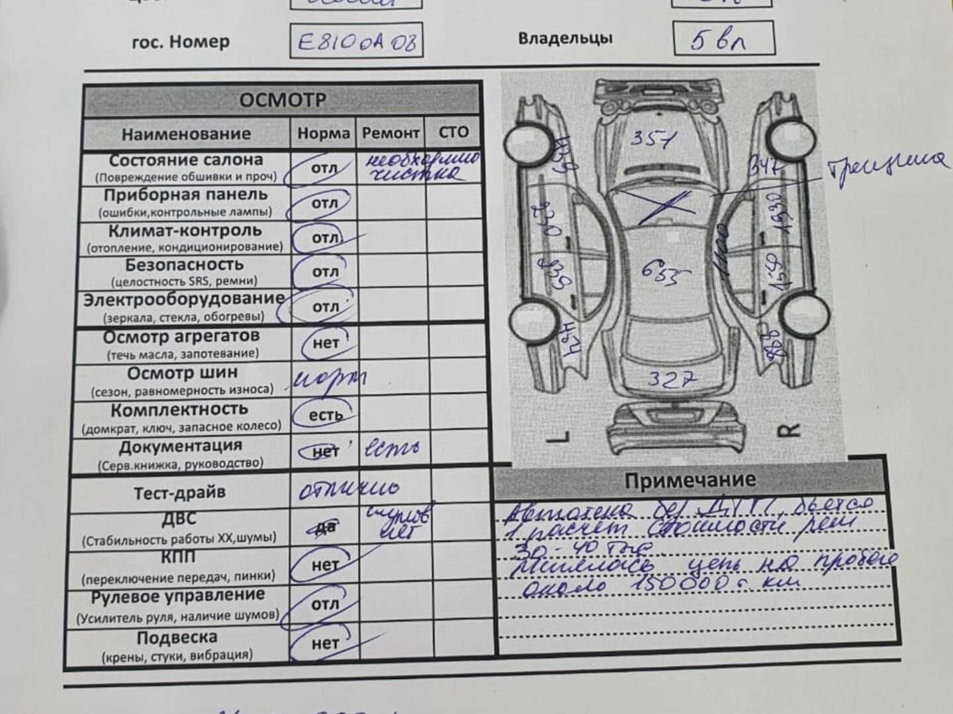 гос. Номер Е810ОА 08 Владельцы 5 вл
ОСМОТР
Наименование Норма Ремонт СТО
Состояние салона отл необходимо
(Повреждение обшивки и проч) чистка
Приборная панель отл
(ошибки,контрольные лампы)
Климат-контроль отл
(отопление, кондиционирование)
Безопасность отл
(целостность SRS, ремни)
Электрооборудование отл
(зеркала, стекла, обогревы)
Осмотр агрегатов нет
(течь масла, запотевание)
Осмотр шин норм
(сезон, равномерность износа)
Комплектность есть
(домкрат, ключ, запасное колесо)
Документация нет есть
(Серв.книжка, руководство)
Тест-драйв отлично
ДВС да шумов
(Стабильность работы ХХ,шумы) нет
КПП нет
(переключение передач, пинки)
Рулевое управление отл
(Усилитель руля, наличие шумов)
Подвеска нет
(крены, стуки, вибрация)
351
347
трещина
655
327
L
R
Примечание
Автотека без ДТП, бьется
1 расчет стоимости рем
30-40 т.р.
Менялась цепь на пробеге
около 150000 т. км